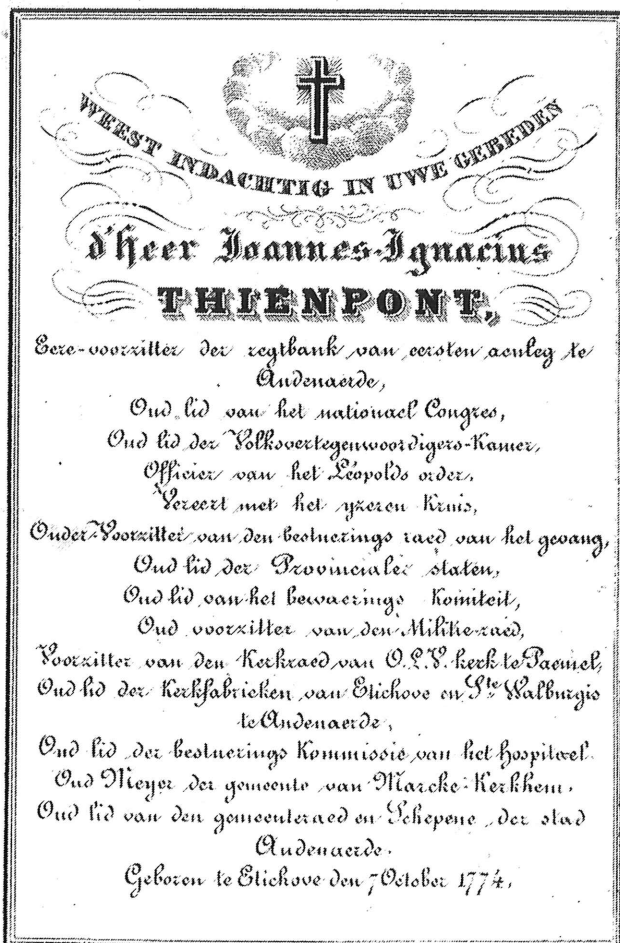 WEEST INDACHTIG IN UWE GEBEDEN
d'heer Joannes-Ignacius
THIENPONT,
Eere-voorzitter der regtbank van eersten aenleg te
Audenaerde,
Oud lid van het nationael Congres,
Oud lid der Volksvertegenwoordigers-Kamer,
Officier van het Léopolds order,
Vereert met het yzeren Kruis,
Onder-Voorzitter van den bestuerings raed van het gevang,
Oud lid der Provinciale staten,
Oud lid van het bewaerings Komiteit,
Oud voorzitter van den Militie-raed,
Voorzitter van den Kerkraed van O.L.V. kerk te Paemel,
Oud lid der Kerkfabricken van Etichove en Ste Walburgis
te Audenaerde,
Oud lid der bestuerings Kommissie van het hospitael.
Oud Meyer der gemeente van Marcke-Kerkhem.
Oud lid van den gemeenteraed en Schepene der stad
Audenaerde.
Geboren te Etichove den 7 October 1774.